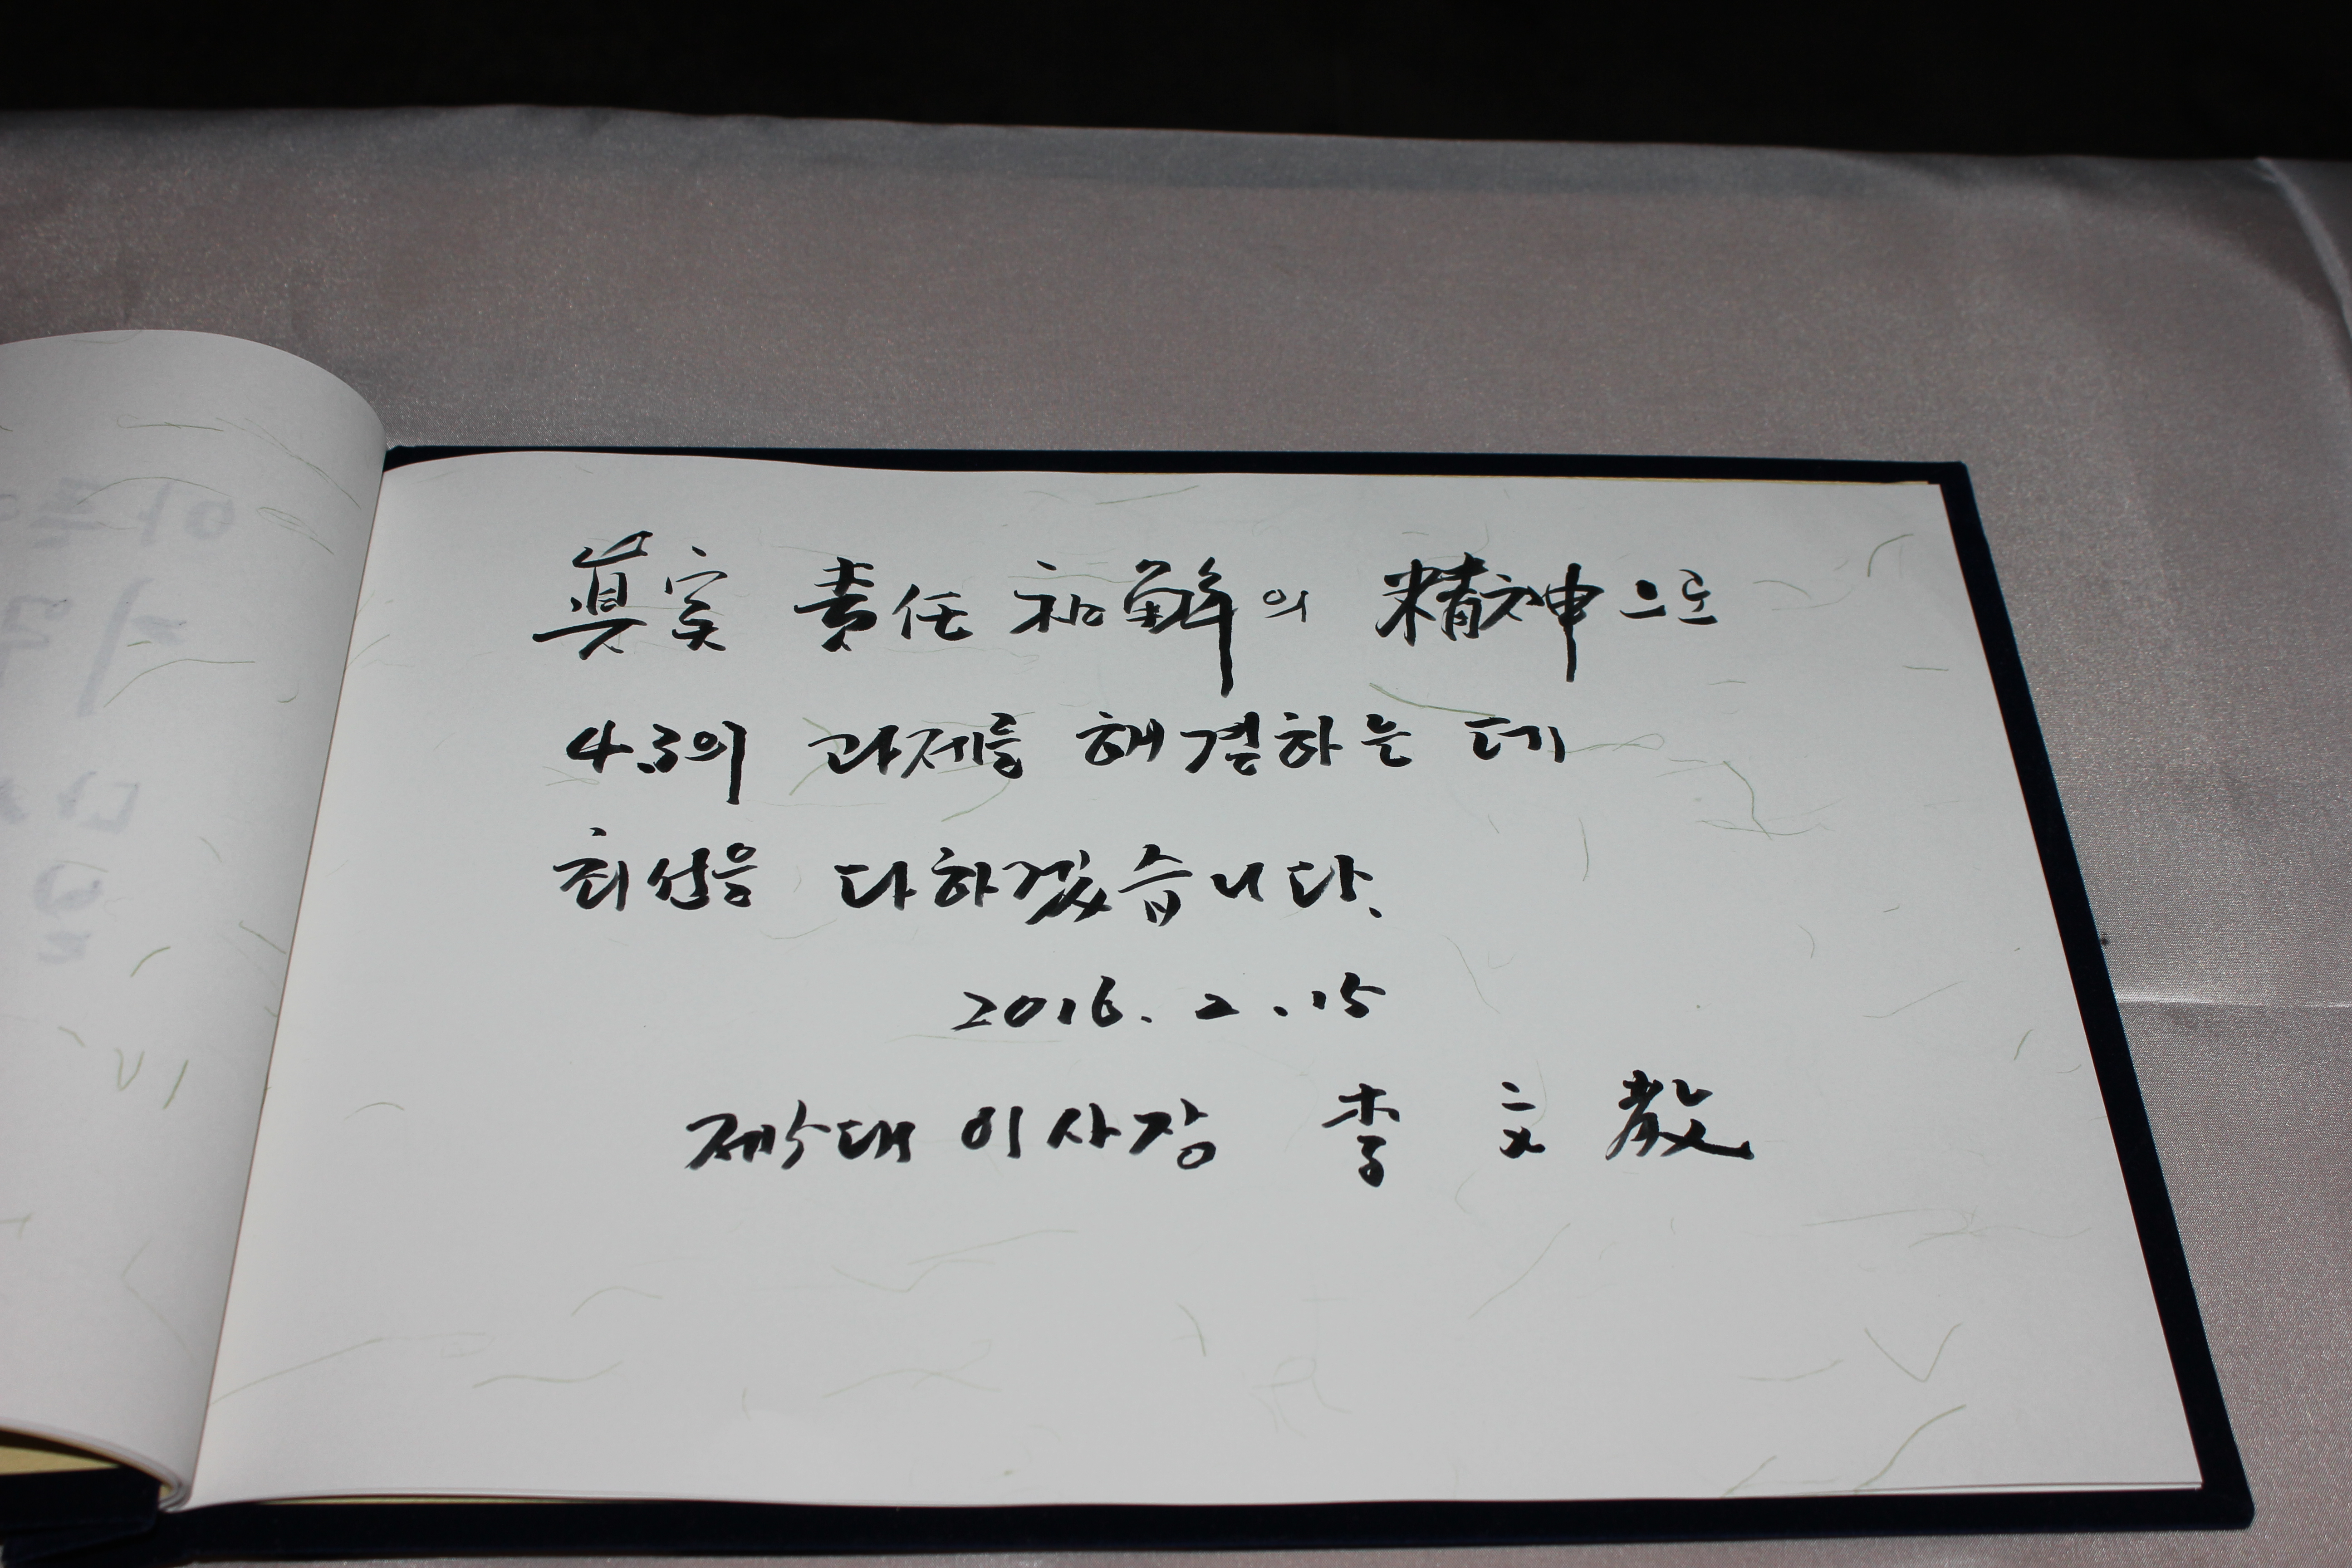 眞実 責任 和解의 精神으로
4.3의 과제를 해결하는 데
최선을 다하겠습니다.
2016. 2. 15
제5대 이사장 李 文 敎